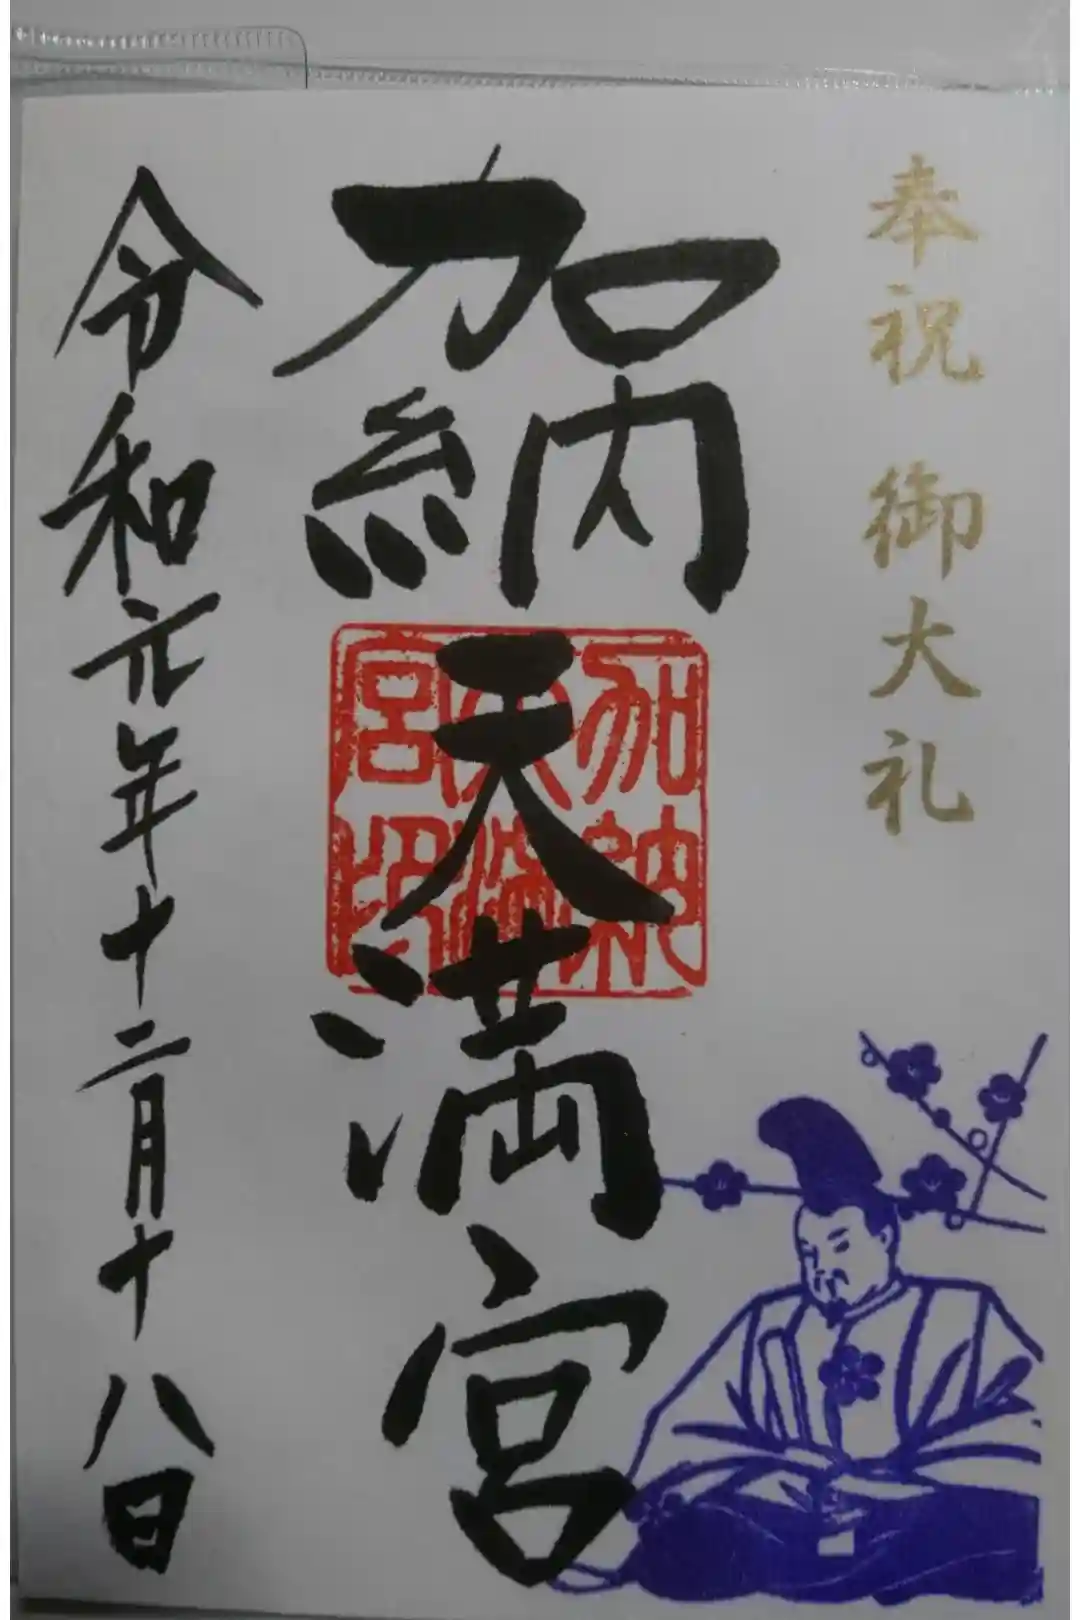 奉祝 御大礼
加納天満宮
加納天満宮印
令和元年十二月十八日